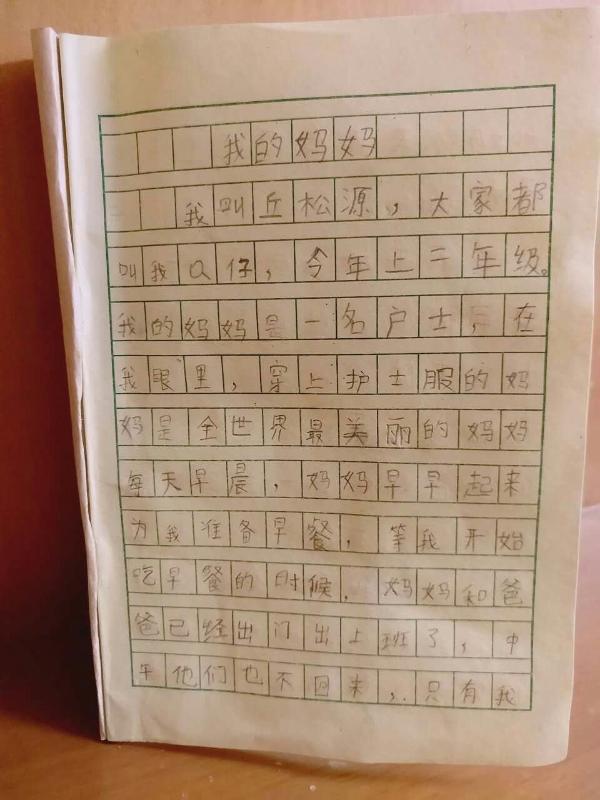 我的妈妈
我叫丘松源，大家都
叫我Q仔，今年上二年级。
我的妈妈是一名户士，在
我眼里，穿上护士服的妈
妈是全世界最美丽的妈妈
每天早晨，妈妈早早起来
为我准备早餐，等我开始
吃早餐的时候，妈妈和爸
爸已经出门出上班了，中
午他们也不回来，只有我